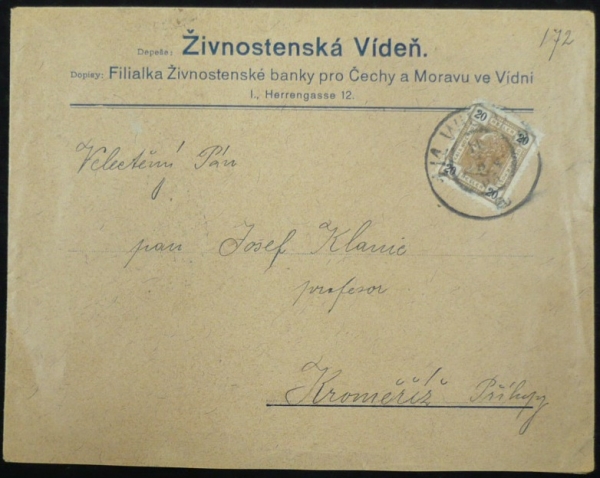 172
Depeše: Živnostenská Vídeň.
Dopisy: Filialka Živnostenské banky pro Čechy a Moravu ve Vídni
I., Herrengasse 12.
20 20
20 20
Velectěný Pán
pan Josef Klanic
profesor
Kroměříž